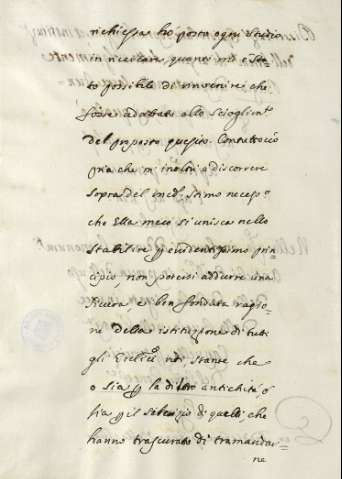 richiesta hò posto ogni studio
in ricercare, quanto mi è sta-
to possibile di rinvenire che
fosse adattato allo scioglim.to
del proposto quesito. Contuttociò
p̱ria che m'inoltri a discorrere
sopra del med. stimo necess.o
che Ella meco si unisca nello
stabilire p evidentissimo prin-
cipio, non potersi addurre una
sicura, e ben fondata ragio-
ne della istituzione di tutti
gli stante che
o sia p la di loro antichità, ò
sia p il silenzio di quelli, che
hanno trascurato di tramandar-
ne